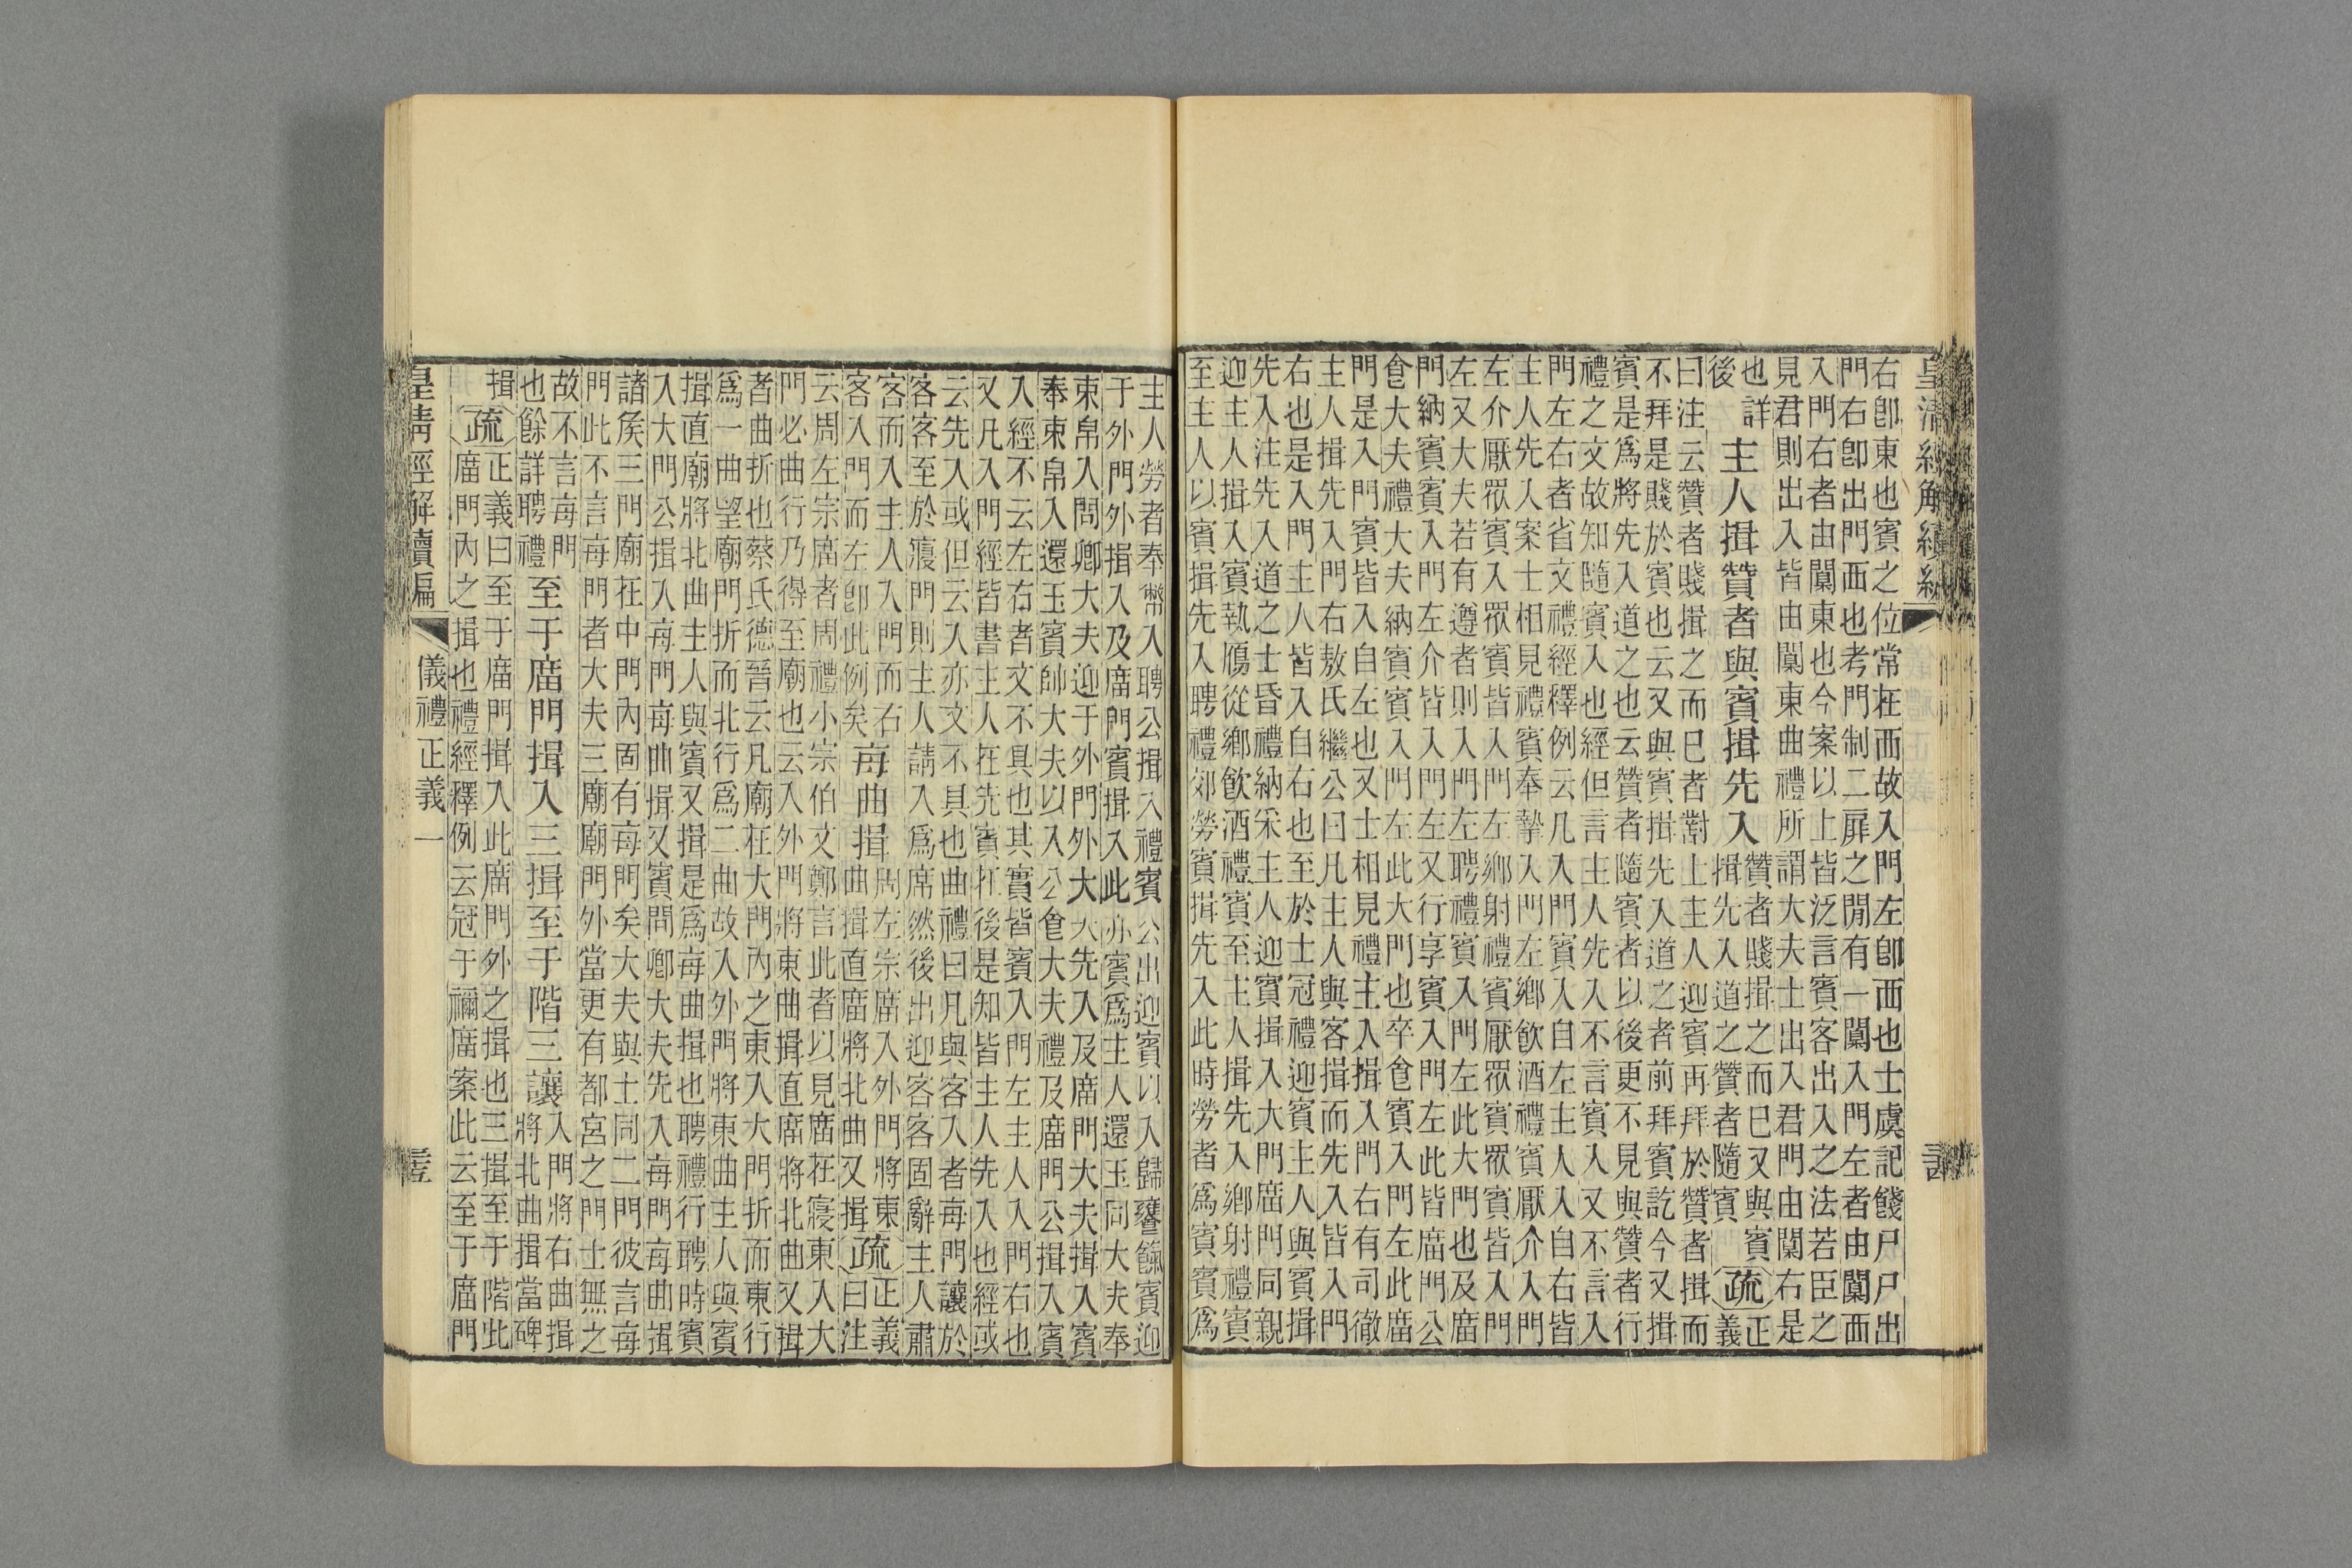 皇清經解續編
右卽東也賓之位常在西故入門左卽西也士虞記餞尸尸出
門右卽出門西也考門制二扉之閒有一闑入門左者由闑西
入門右者由闑東也今案以上皆泛言賓客出入之法若臣之
見君則出入皆由闑東曲禮所謂大夫士出入君門由闑右是
也詳
後
主人揖贊者與賓揖先入
贊者賤揖之而已又與賓
揖先入道之贊者隨賓
疏
正
義
曰注云贊者賤揖之而已者對上主人迎賓再拜於贊者揖而
不拜是賤於賓也云又與賓揖先入道之者前拜賓訖今又揖
賓是爲將先入道之也云贊者隨賓者以後更不見與贊者行
禮之文故知隨賓入也經但言主人先入不言賓入又不言入
門左右者省文禮經釋例云凡入門賓入自左主人入自右皆
主人先入案士相見禮賓奉摯入門左鄉飲酒禮賓厭介入門
左介厭眾賓入眾賓皆入門左鄉射禮賓厭眾賓眾賓皆入門
左又大夫若有遵者則入門左聘禮賓入門左此大門也及廟
門納賓賓入門左介皆入門左又行享賓入門左此皆廟門公
食大夫禮大夫納賓賓入門左此大門也卒食賓入門左此廟
門是入門賓皆入自左也又士相見禮主入揖入門右有司徹
主人揖先入門右敖氏繼公曰凡主人與客揖而先入皆入門
右也是入門主人皆入自右也至於士冠禮迎賓主人與賓揖
先入注先入道之士昏禮納采主人迎賓揖入大門廟門同親
迎主人揖入賓執鴈從鄉飲酒禮賓至主人揖先入鄉射禮賓
至主人以賓揖先入聘禮郊勞賓揖先入此時勞者爲賓賓爲
主人勞者奉幣入聘公揖入禮賓公出迎賓以入歸饔餼賓迎
于外門外揖入及廟門賓揖入此亦賓爲主人還玉同大夫奉
束帛入問卿大夫迎于外門外大夫先入及廟門大夫揖入賓
奉束帛入還玉賓帥大夫以入公食大夫禮及廟門公揖入賓
入經不云左右者文不具也其實皆賓入門左主人入門右也
又凡入門經皆書主人在先賓在後是知皆主人先入也經或
云先入或但云入亦文不具也曲禮曰凡與客入者每門讓於
客客至於寢門則主人請入爲席然後出迎客客固辭主人肅
客而入主人入門而右
客入門而左卽此例矣
每曲揖
周左宗廟入外門將東
曲揖直廟將北曲又揖
疏
正義
曰注
云周左宗廟者周禮小宗伯文鄭言此者以見廟在寢東入大
門必曲行乃得至廟也云入外門將東曲揖直廟將北曲又揖
者曲折也蔡氏德晉云凡廟在大門內之東入大門折而東行
爲一曲望廟門折而北行爲二曲故入外門將東曲主人與賓
揖直廟將北曲主人與賓又揖是爲每曲揖也聘禮行聘時賓
入大門公揖入每門每曲揖又賓問卿大夫先入每門每曲揖
諸侯三門廟在中門內固有每門矣大夫與士同二門彼言每
門此不言每門者大夫三廟廟門外當更有都宮之門士無之
故不言每門
也餘詳聘禮
至于廟門揖入三揖至于階三讓
入門將右曲揖
將北曲揖當碑
揖
疏
正義曰至于廟門揖入此廟門外之揖也三揖至于階此
廟門內之揖也禮經釋例云冠于禰廟案此云至于廟門
皇清經解續編
儀禮正義一